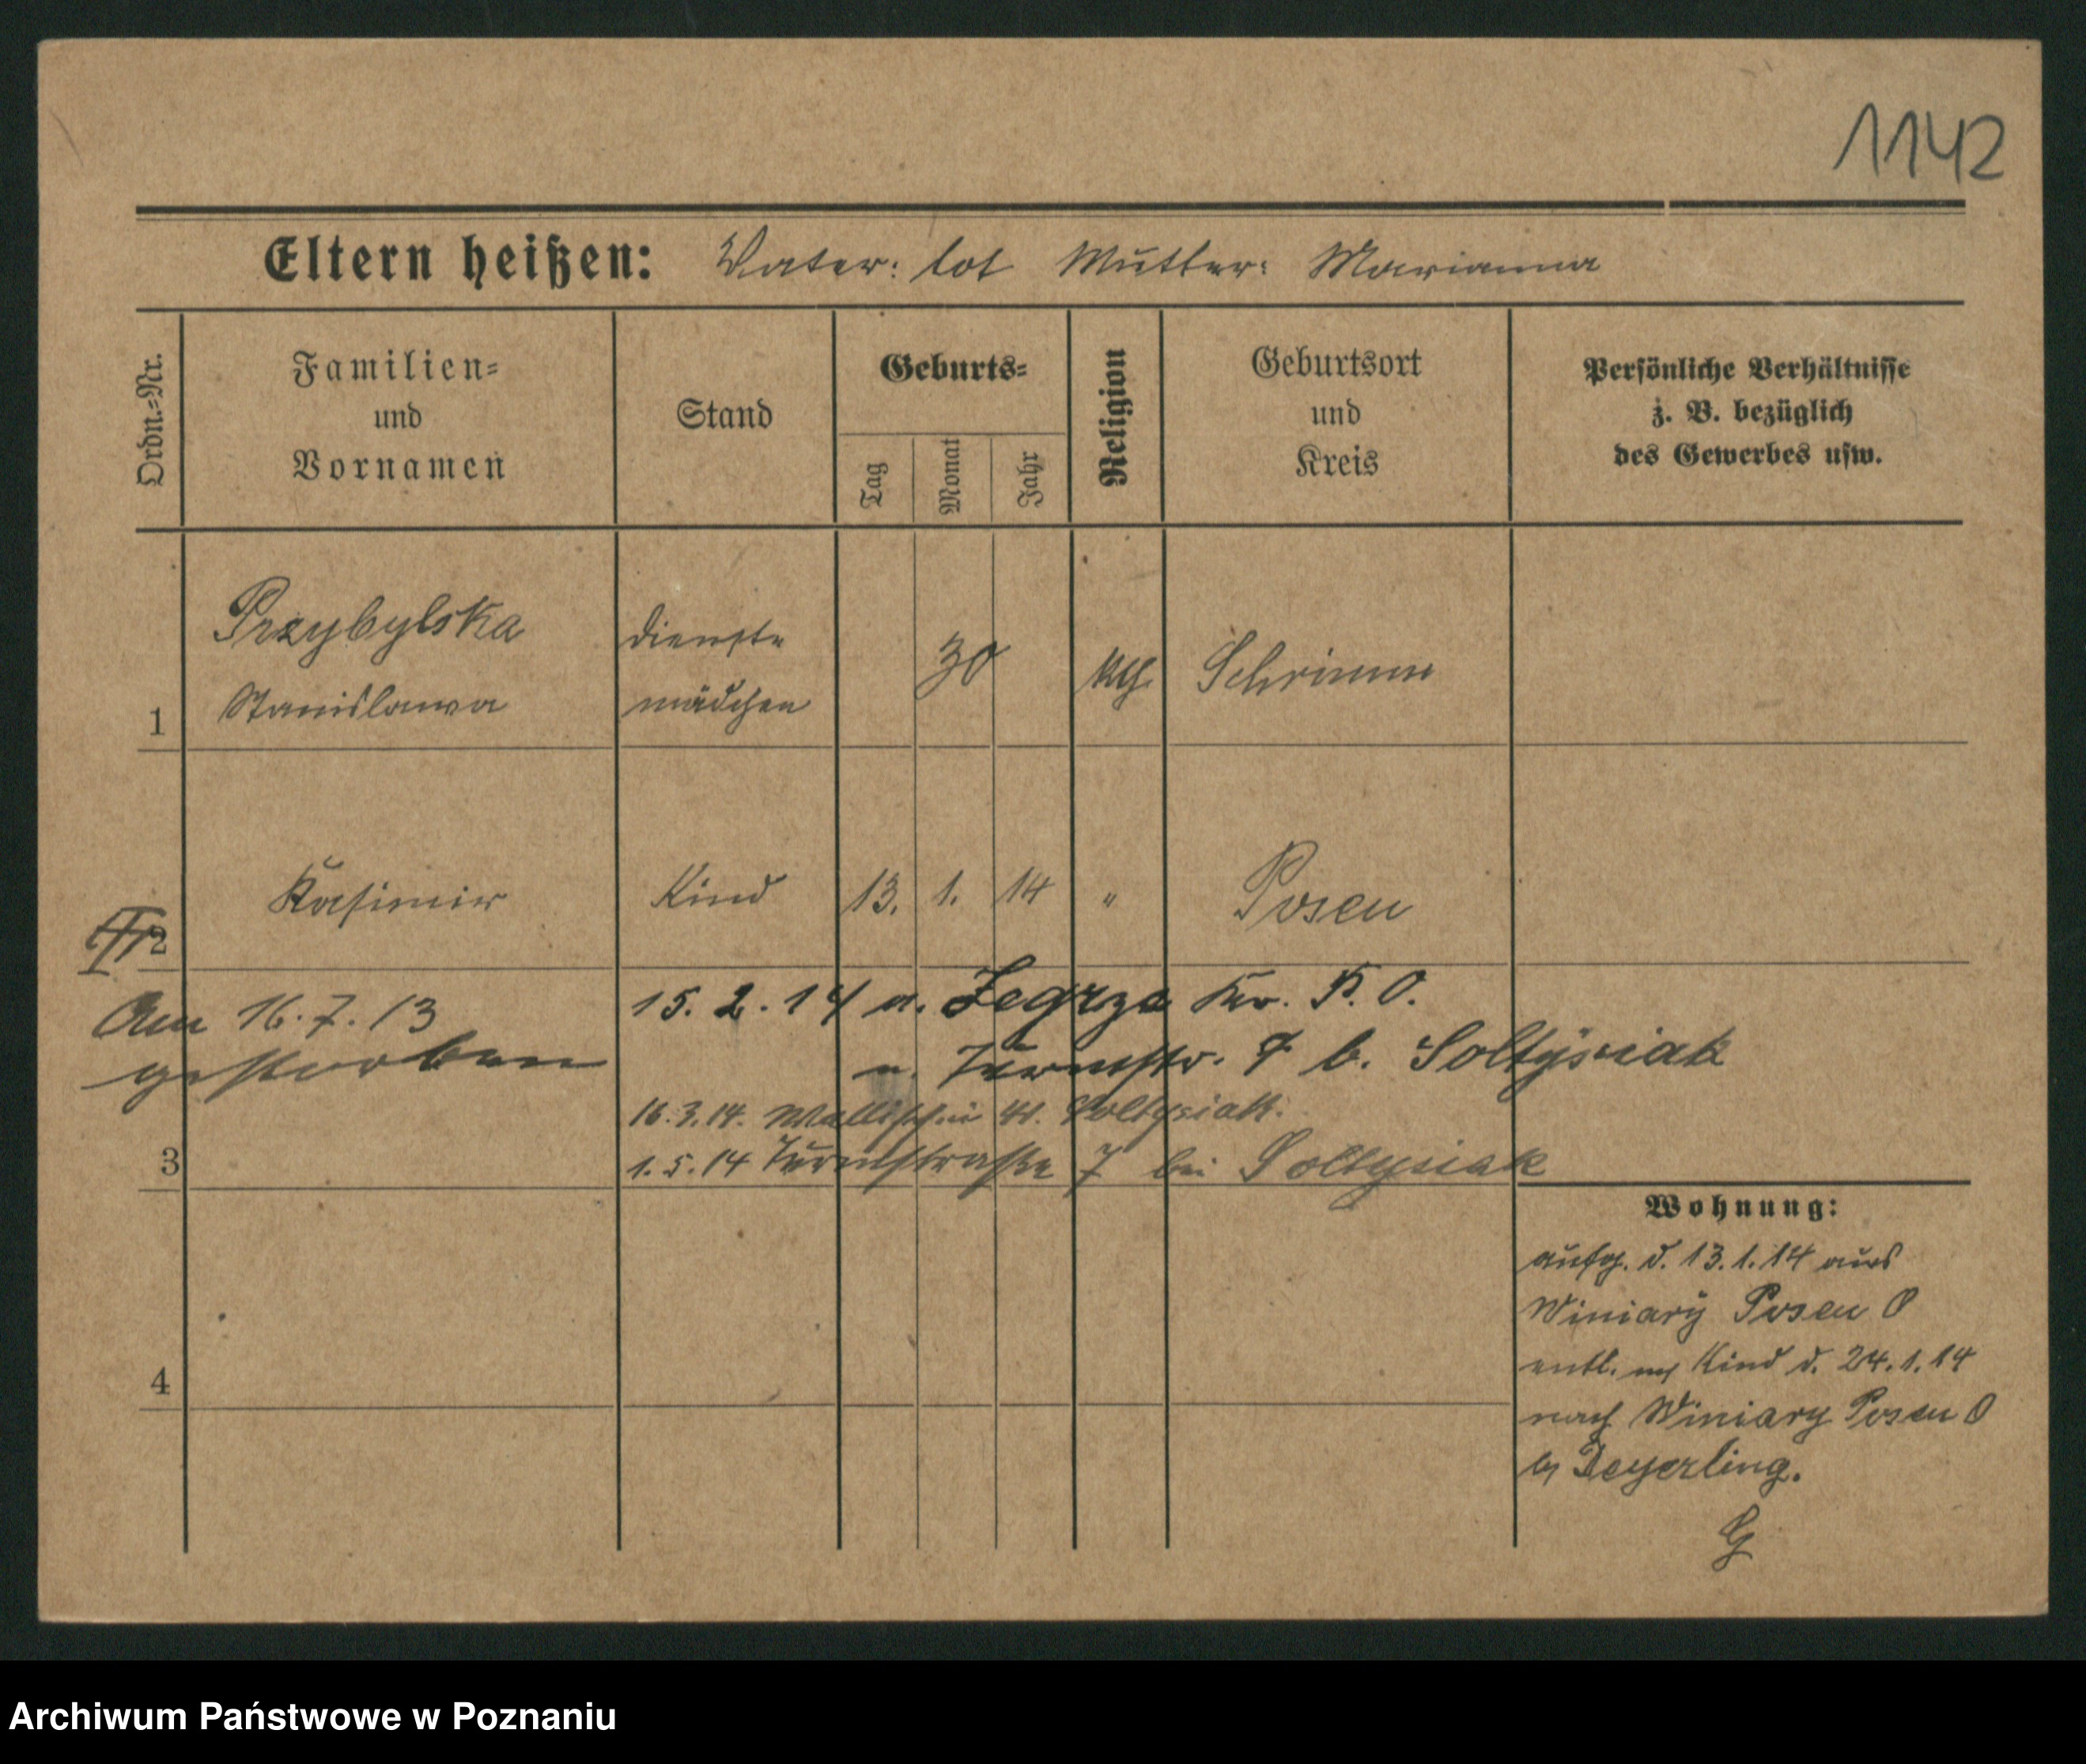 1142
Eltern heißen: Vater: tot Mutter: Marianna
Ordn.=Nr.
Familien=
und
Vornamen
Stand
Geburts=
Tag
Monat
Jahr
Religion
Geburtsort
und
Kreis
Persönliche Verhältnisse
z. B. bezüglich
des Gewerbes usw.
1
Przybylska
Stanislawa
Dienst
mädchen
30
kth.
Schrimm
2
Kasimir
Kind
13. 1. 14
"
Posen
Am 16. 7. 13
gestorben
15. 2. 14 n. Zegrze Kr. P. O.
n. Turmstr. 7 b. Soltysiak
16. 3. 14. Wallischei Soltysiak.
3
1. 5. 14 Turmstraße 7 bei Soltysiak
4
Wohnung:
aufg. d. 13. 1. 14 aus
Winiary Posen O
entl. Kind d. 24. 1. 14
nach Winiary Posen O
b. Deyerling.
G
Archiwum Państwowe w Poznaniu